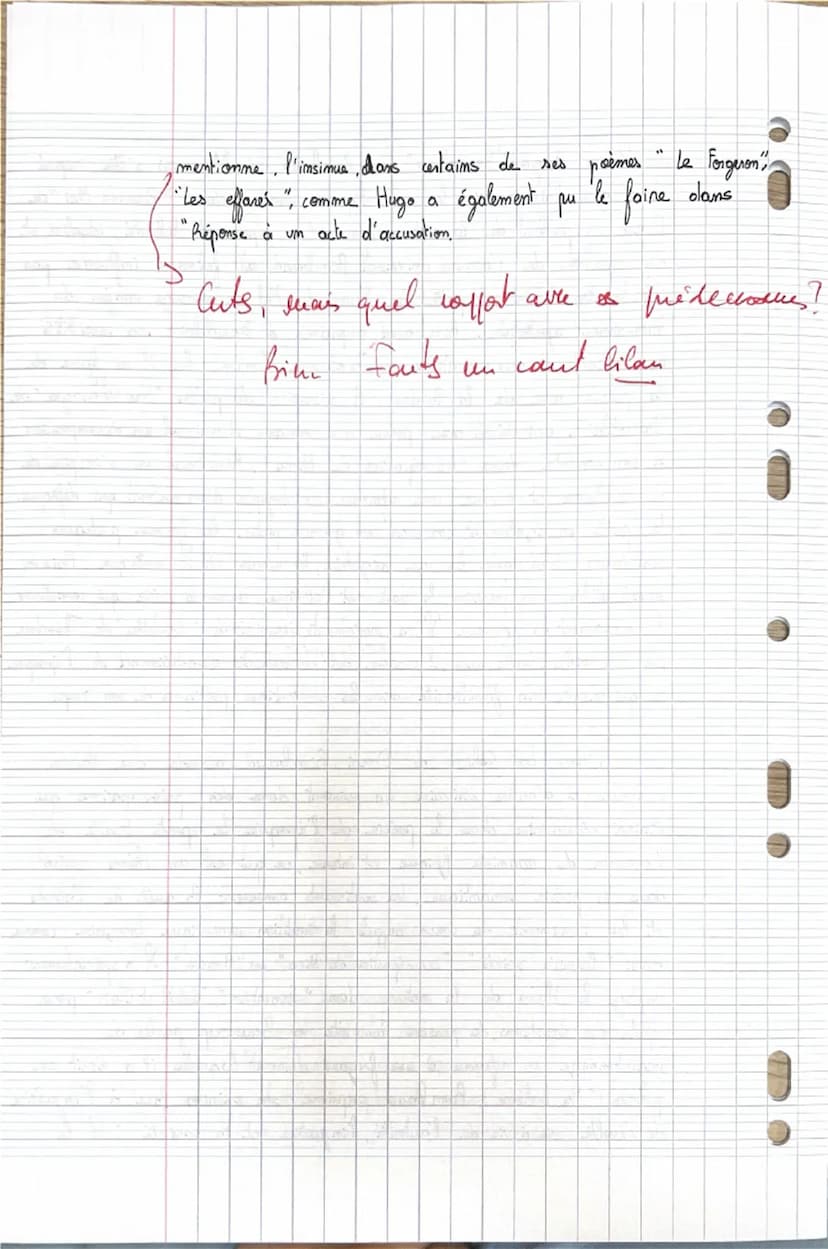 mentionne, l'insinue, dans certains de ses poèmes "Le Forgeron",
"Les effarés", comme Hugo a également pu le faire dans
"Réponse à un acte d'accusation.
Certs, mais quel rapport avec prédecesseurs?
Bien Faits un court bilan